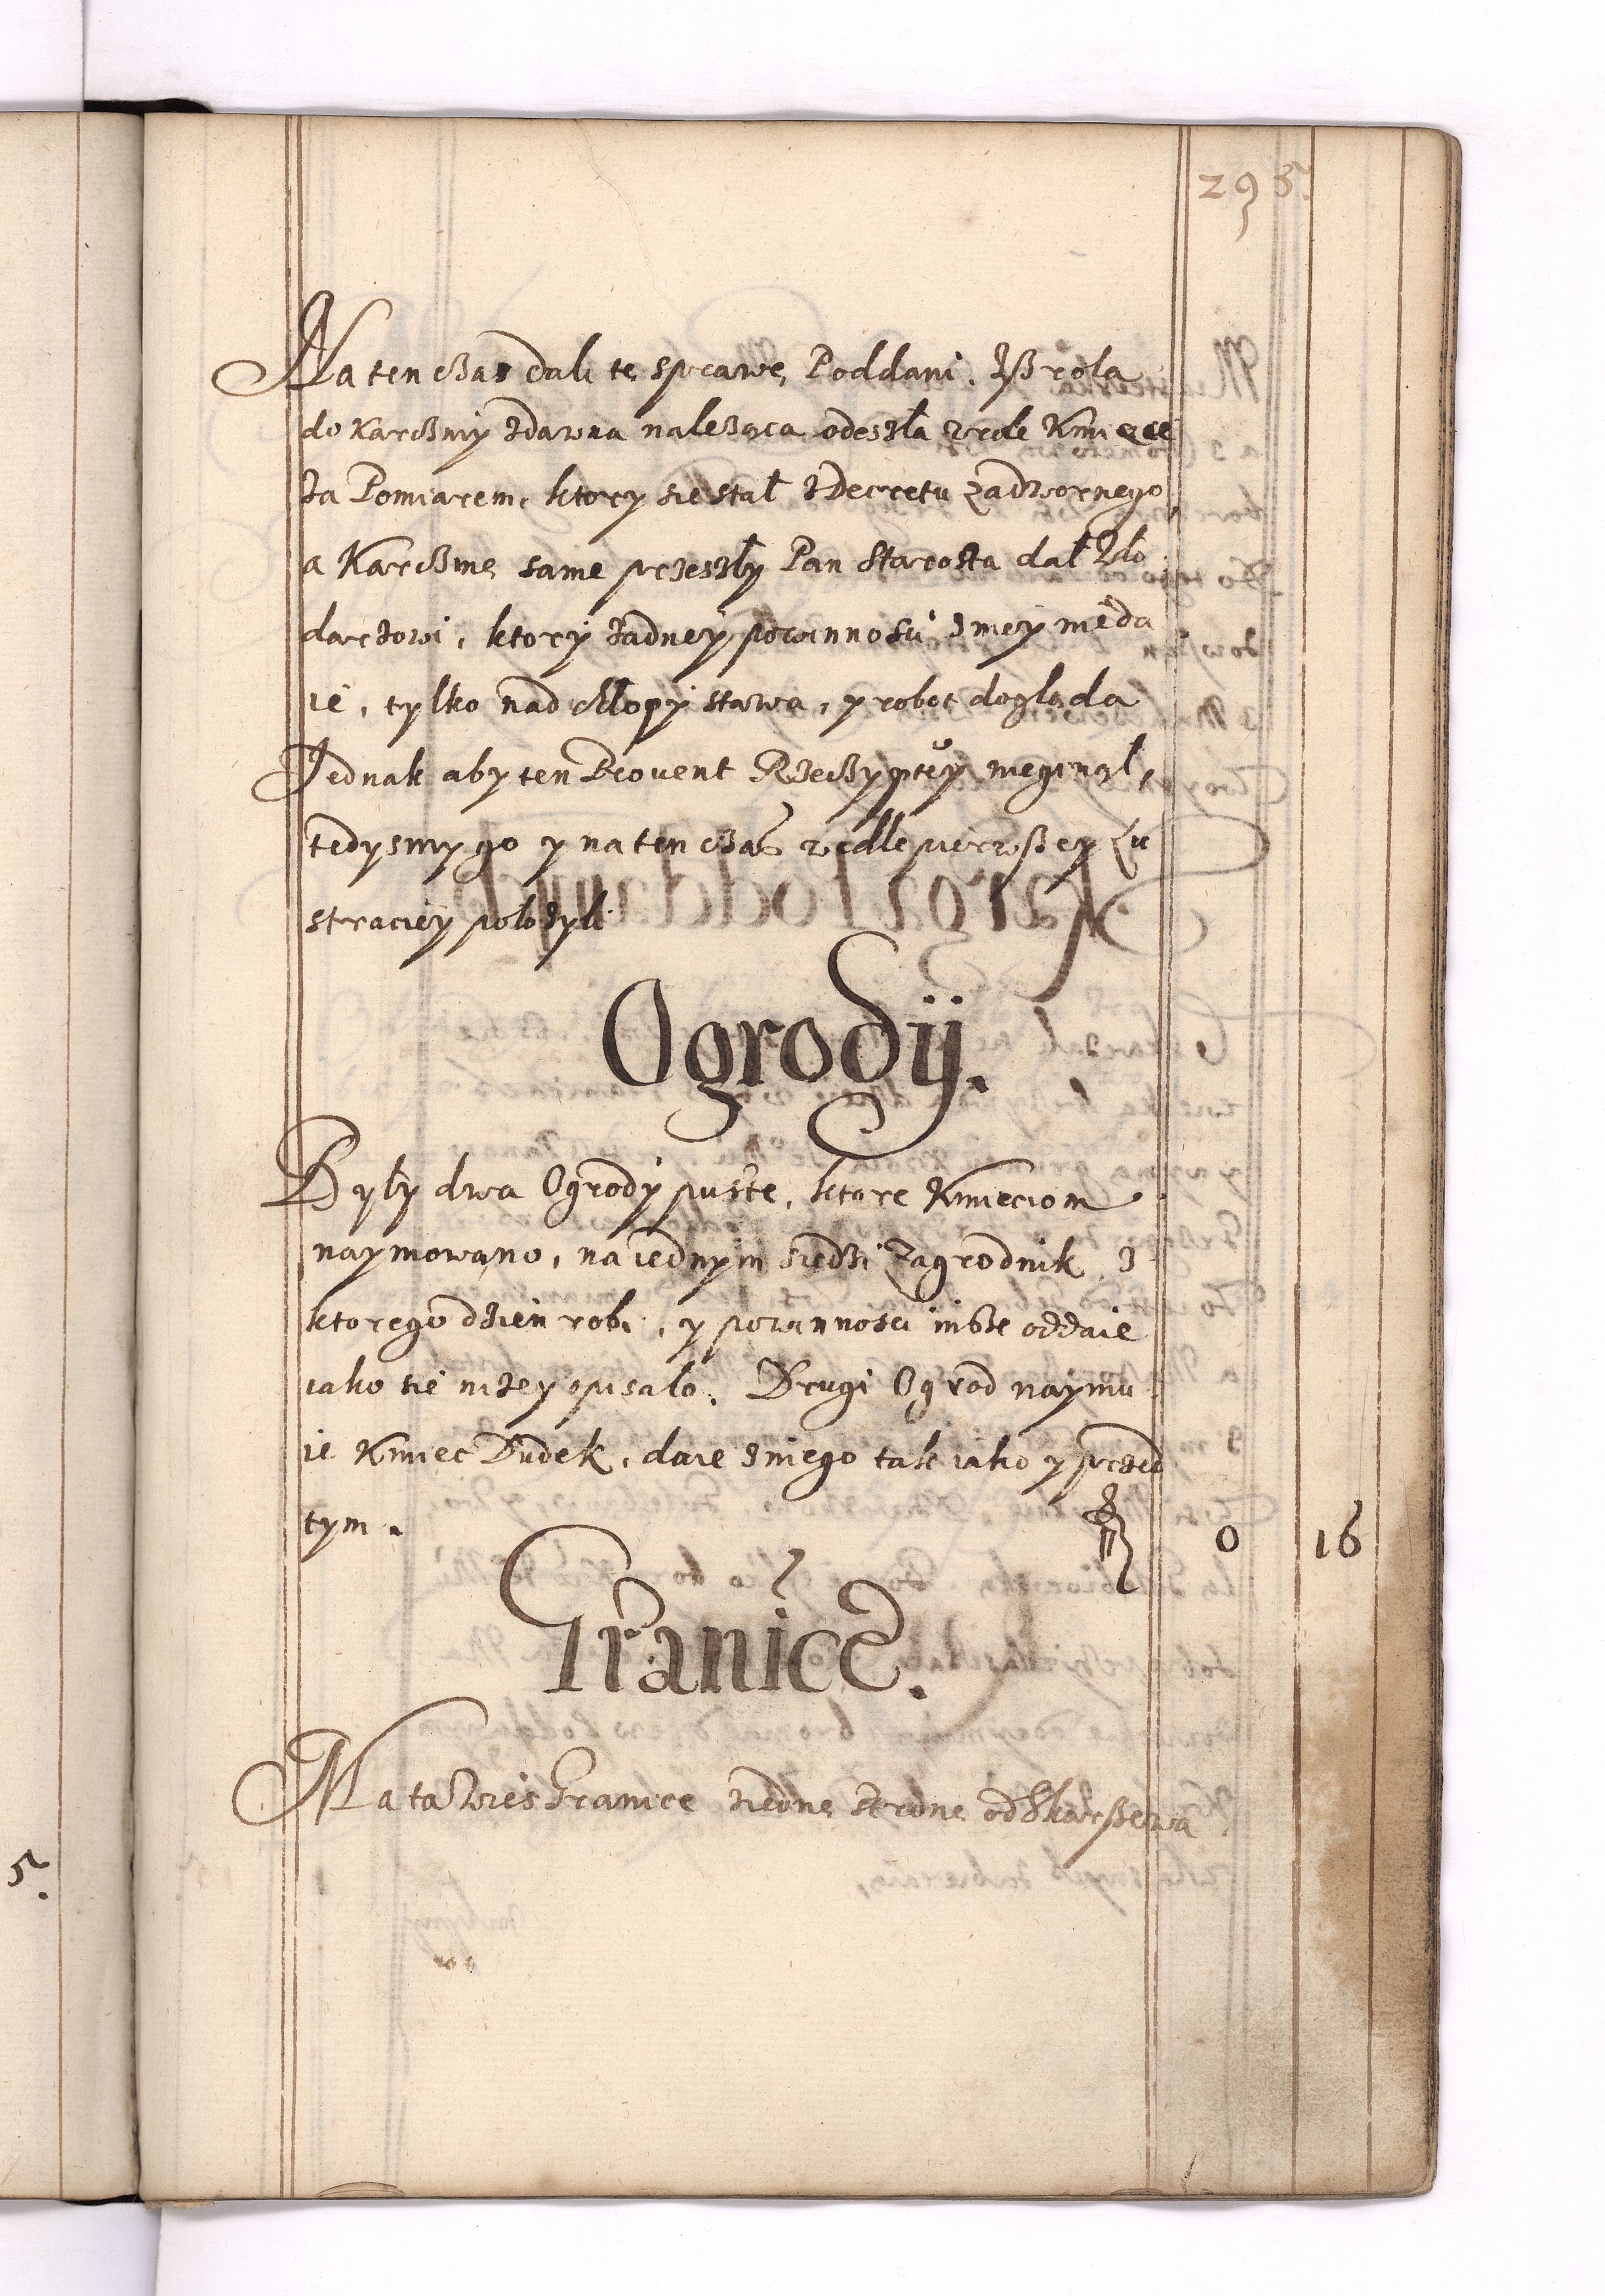 295.
Na ten czas dali tę sprawę Poddani. Iß rola
do Karczmy zdawna należąca odeszła w role Kmiece
za Pomiarem, ktory się stał z Decretu Zadwornego
a Karczmę samę przeszły Pan Starosta dał Wło
darzowi, ktory żadney powinnosci z niey nie da
ie, tylko nad chłopy stawa, y robot dogląda
Jednak aby ten Prouent Rzeczyptey nieginął,
tedysmy go y na ten czas wedle pierwßey Lu
straciey położyli
Ogrody.
Były dwa Ogrody puste, ktore Kmieciom
naymowano, na iednym siedzi Zagrodnik z
ktorego dzien robi, y powinnosci insze oddaie
iako się niżey opisało. Drugi Ogrod naymu
ie Kmiec Dudek, daie z niego tak iako y przed
tym. 0 16
Granice.
Ma ta Wies Granice z iednę stronę od Skarßewa
5.